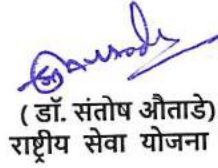 ( डॉ. संतोष औताडे)
राष्ट्रीय सेवा योजना